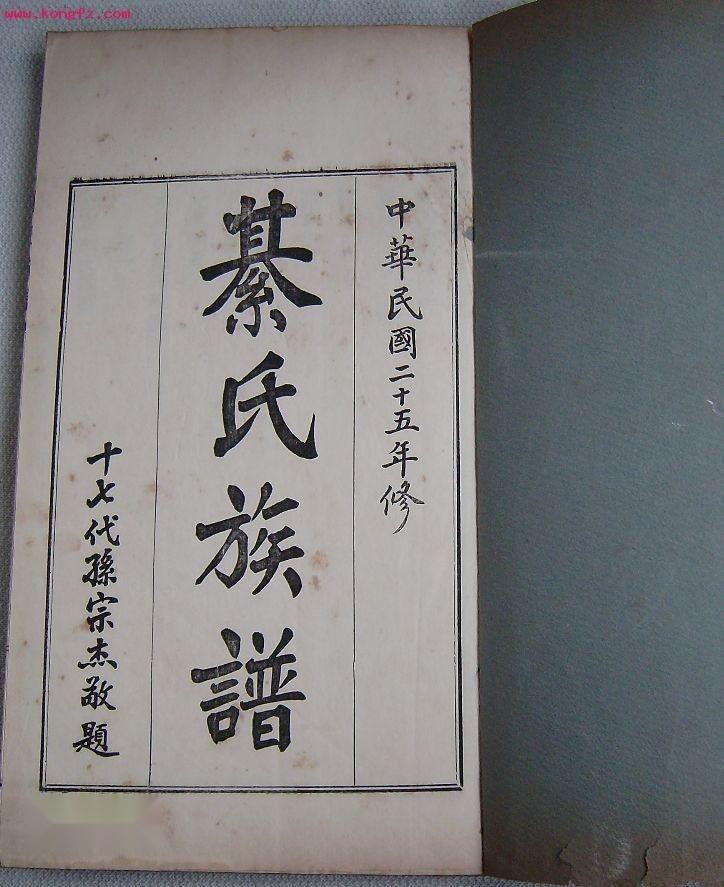 www.kongfz.com
中華民國二十五年修
綦氏族譜
十七代孫宗杰敬題